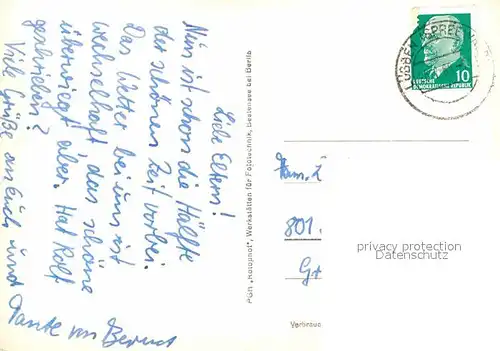 Liebe Eltern!
Nun ist schon die Hälfte
der schönen Zeit vorbei.
Das Wetter bei uns ist
wechselhaft, das schöne
überwiegt aber. Hat Rolf
geschrieben?
Viele Grüße an Euch und
Tante von Bernd
PGH „Rotophot", Werkstätten für Fototechnik, Bestensee bei Berlin
10
DEUTSCHE
DEMOKRATISCHE REPUBLIK
Fam. L
801.
privacy protection
Datenschutz
Verbrauc